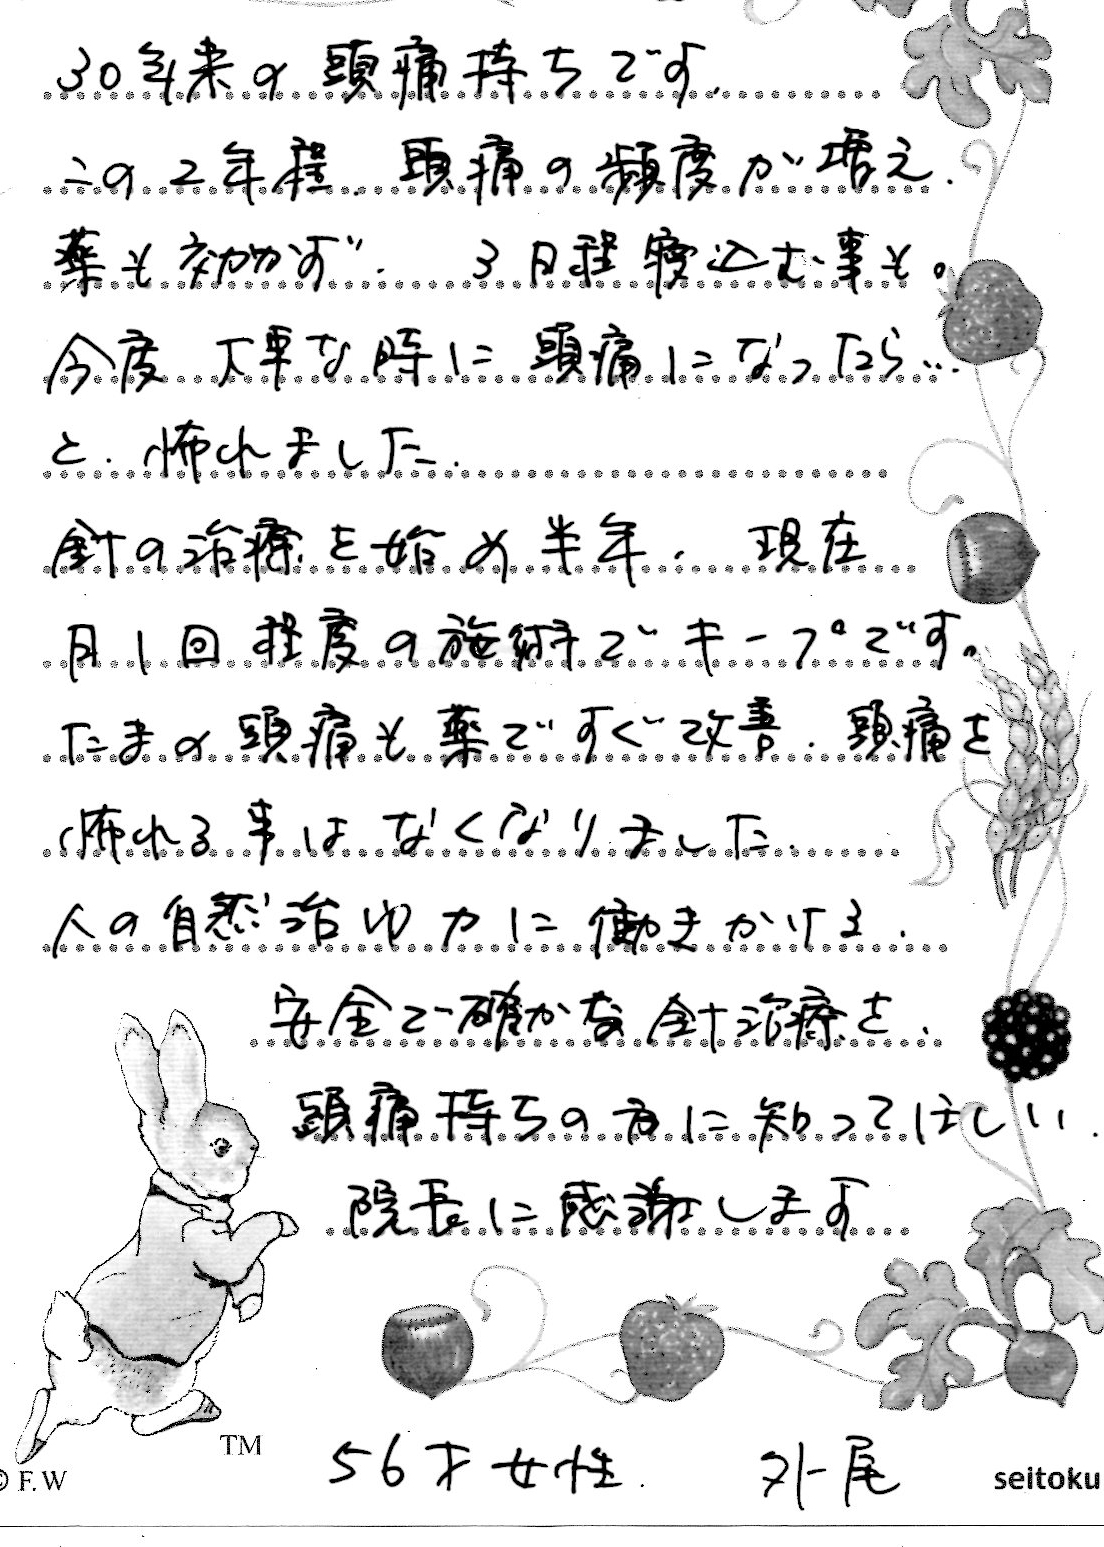 30年来の頭痛持ちです.
この2年程.頭痛の頻度が増え.
薬も効かず. 3日程寝込む事も。
今度 大事な時に 頭痛になったら…
と.怖れました.
針の治療を始め半年. 現在
月1回程度の施術でキープです。
たまの頭痛も薬ですぐ改善.頭痛を
怖れる事はなくなりました.
人の自然治ゆ力に働きかける.
安全で確かな針治療を.
頭痛持ちの方に知ってほしい.
院長に感謝します
TM
56才女性. 外尾
© F.W
seitoku